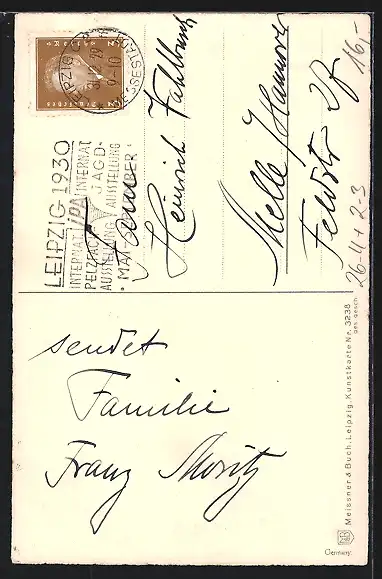 LEIPZIG
3
Deutsches Reich
MESSESTADT
9-10
LEIPZIG 1930
INTERNAT. IPA INTERNAT.
PELZFACH JAGD-
AUSSTELLUNG AUSSTELLUNG
MAI-SEPTEMBER
Heinrich Vahlbusch
Melle/Hannover
Feldstr. 28
16,-
26-4+2-3
sendet
Familie
Franz Moritz
Meissner & Buch, Leipzig, Kunstkarte Nr. 3238
ges. gesch.
Germany.